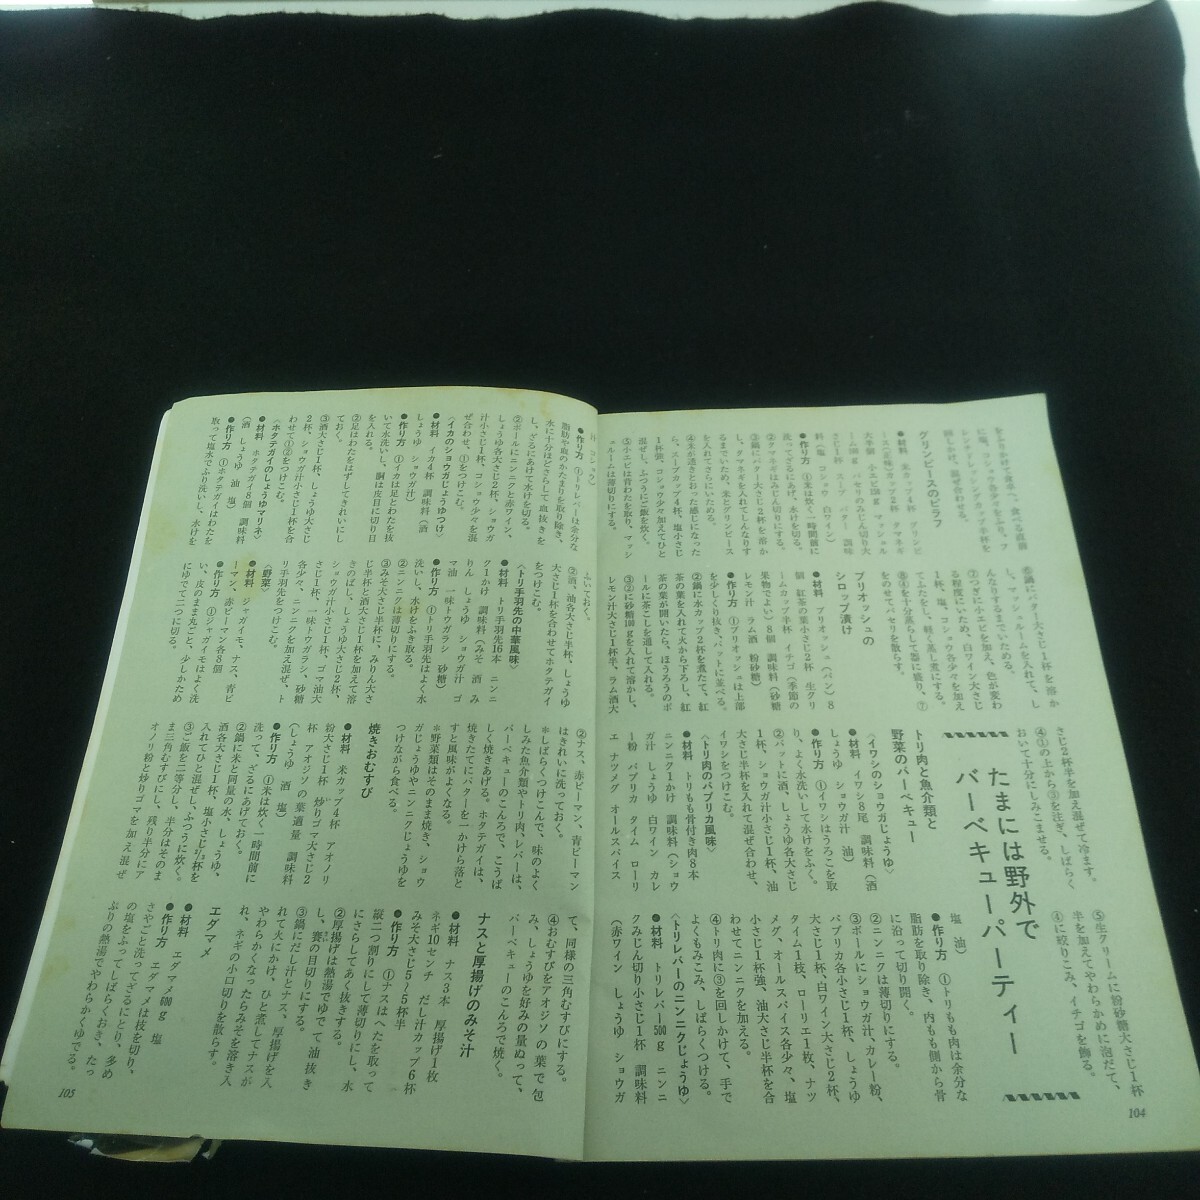 をふりかけて冷まし、食べる直前
に塩、コショウ各少々をふり、フ
レンチドレッシングカップ半杯を
回しかけ、混ぜ合わせる。
グリンピースのピラフ
●材料　米カップ4杯　グリンピ
ース(正味)カップ2杯　タマネギ
大半個　小エビ150g　マッシュル
ーム100g　パセリのみじん切り大
さじ1杯　スープ　バター　調味
料(塩　コショウ　白ワイン)
●作り方　①米は炊く一時間前に
洗ってざるにあげ、水けを切る。
②タマネギはみじん切りにする。
③鍋にバター大さじ2杯を溶か
し、タマネギを入れてしんなりす
るまでいため、米とグリンピース
を入れてさらにいためる。
④米が透きとおった感じになった
ら、スープカップ4杯、塩小さじ
1杯強、コショウ少々加えてひと
混ぜし、ふつうにご飯を炊く。
⑤小エビは背わたを取り、マッシ
ュルームは薄切りにする。
⑥鍋にバター大さじ1杯を溶か
し、マッシュルームを入れて、し
んなりするまでいためる。
⑦つぎに小エビを加え、色が変わ
る程度にいため、白ワイン大さじ
1杯、塩、コショウ各少々を加え
て上ぶたをし、軽く蒸し煮にする。
⑧④を十分蒸らして器に盛り、⑦
をのせてパセリを散らす。
ブリオッシュの
シロップ漬け
●材料　ブリオッシュ(パン)8
個　紅茶の葉小さじ2杯　生クリ
ームカップ半杯　イチゴ(季節の
果物でよい)8個　調味料(砂糖
レモン汁　ラム酒　粉砂糖)
●作り方　①ブリオッシュは上部
を少しくり抜き、バットに並べる。
②鍋に水カップ2杯を煮たて、紅
茶の葉を入れて火から下ろし、紅
茶の葉が開いたら、ほうろうのボ
ールに茶こしを通して入れる。
③②に砂糖100gを入れて溶かし、
レモン汁大さじ1杯半、ラム酒大
さじ2杯半を加え混ぜて冷ます。
④①の上から③を注ぎ、しばらく
おいて十分にしみこませる。
⑤生クリームに粉砂糖大さじ1杯
半を加えてやわらかめに泡だて、
④に絞りこみ、イチゴを飾る。
たまには野外で
バーベキューパーティー
トリ肉と魚介類と
野菜のバーベキュー
〈イワシのショウガじょうゆ〉
●材料　イワシ8尾　調味料(酒
しょうゆ　ショウガ汁　油)
●作り方　①イワシはうろこを取
り、よく水洗いして水けをふく。
②バットに酒、しょうゆ各大さじ
1杯、ショウガ汁小さじ1杯、油
大さじ半杯を入れて混ぜ合わせ、
イワシをつけこむ。
〈トリ肉のパプリカ風味〉
●材料　トリもも骨付き肉8本
ニンニク1かけ　調味料(ショウ
ガ汁　しょうゆ　白ワイン　カレ
ー粉　パプリカ　タイム　ローリ
エ　ナツメグ　オールスパイス
塩　油)
●作り方　①トリもも肉は余分な
脂肪を取り除き、内もも側から骨
に沿って切り開く。
②ニンニクは薄切りにする。
③ボールにショウガ汁、カレー粉、
パプリカ各小さじ1杯、しょうゆ
大さじ1杯、白ワイン大さじ2杯、
タイム1枝、ローリエ1枚、ナツ
メグ、オールスパイス各少々、塩
小さじ1杯強、油大さじ半杯を合
わせてニンニクを加える。
④トリ肉に③を回しかけて、手で
よくもみこみ、しばらくつける。
〈トリレバーのニンニクじょうゆ〉
●材料　トリレバー500g　ニンニ
クみじん切り小さじ1杯　調味料
(赤ワイン　しょうゆ　ショウガ
104
●作り方　①トリレバーは余分な
脂肪や血のかたまりを取り除き、
水に十分ほどさらして血抜きを
し、ざるにあけて水けを切る。
②ボールにニンニクと赤ワイン、
しょうゆ各大さじ2杯、ショウガ
汁小さじ1杯、コショウ少々を混
ぜ合わせ、①をつけこむ。
〈イカのショウガじょうゆつけ〉
●材料　イカ4杯　調味料(酒
しょうゆ　ショウガ汁)
●作り方　①イカは足とわたを抜
いて水洗いし、胴は皮目に切り目
を入れる。
②足はわたをはずしてきれいにし
ておく。
③酒大さじ1杯、しょうゆ大さじ
2杯、ショウガ汁小さじ1杯を合
わせて①②をつけこむ。
〈ホタテガイのしょうゆマリネ〉
●材料　ホタテガイ8個　調味料
(酒　しょうゆ　油　塩)
●作り方　①ホタテガイはわたを
取って塩水でふり洗いし、水けを
ふいておく。
②酒、油各大さじ半杯、しょうゆ
大さじ1杯を合わせてホタテガイ
をつけこむ。
〈トリ手羽先の中華風味〉
●材料　トリ手羽先16本　ニンニ
ク1かけ　調味料(みそ　酒　み
りん　しょうゆ　ショウガ汁　ゴ
マ油　一味トウガラシ　砂糖)
●作り方　①トリ手羽先はよく水
洗いし、水けをふき取る。
②ニンニクは薄切りにする。
③みそ大さじ半杯に、みりん大さ
じ半杯と酒大さじ1杯を加えて溶
きのばし、しょうゆ大さじ2杯、
ショウガ汁小さじ1杯、ゴマ油大
さじ1杯、一味トウガラシ、砂糖
各少々、ニンニクを加え混ぜ、ト
リ手羽先をつけこむ。
〈野菜〉
●材料　ジャガイモ、ナス、青ピ
ーマン、赤ピーマン各8個
●作り方　①ジャガイモはよく洗
い、皮のまま丸ごと、少しかため
にゆでて二つに切る。
②ナス、赤ピーマン、青ピーマン
はきれいに洗っておく。
＊しばらくつけこんで、味のよく
しみた魚介類やトリ肉、レバーは、
バーベキューのこんろで、こうば
しく焼きあげる。ホタテガイは、
焼きたてにバターを一かけら落と
すと風味がよくなる。
＊野菜類はそのまま焼き、ショウ
ガじょうゆやニンニクじょうゆを
つけながら食べる。
焼きおむすび
●材料　米カップ4杯　アオノリ
粉大さじ1杯　炒りゴマ大さじ2
杯　アオジソの葉適量　調味料
(しょうゆ　酒　塩)
●作り方　①米は炊く一時間前に
洗って、ざるにあげておく。
②鍋に米と同量の水、しょうゆ、
酒各大さじ1杯、塩小さじ⅔杯を
入れてひと混ぜし、ふつうに炊く。
③ご飯を二等分し、半分はそのま
ま三角むすびにし、残り半分にア
オノリ粉と炒りゴマを加え混ぜ
て、同様の三角むすびにする。
④おむすびをアオジソの葉で包
み、しょうゆを好みの量ぬって、
バーベキューのこんろで焼く。
ナスと厚揚げのみそ汁
●材料　ナス3本　厚揚げ1枚
ネギ10センチ　だし汁カップ6杯
みそ大さじ5〜5杯半
●作り方　①ナスはへたを取って
縦二つ割りにして薄切りにし、水
にさらしてあく抜きする。
②厚揚げは熱湯でゆでて油抜き
し、賽の目切りにする。
③鍋にだし汁とナス、厚揚げを入
れて火にかけ、ひと煮してナスが
やわらかくなったらみそを溶き入
れ、ネギの小口切りを散らす。
エダマメ
●材料　エダマメ600g　塩
●作り方　エダマメは枝を切り、
さやごと洗ってざるにとり、多め
の塩をふってしばらくおき、たっ
ぷりの熱湯でやわらかくゆでる。
105